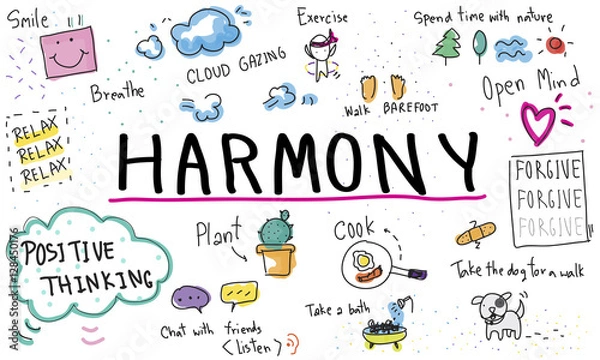 Smile
Breathe
CLOUD GAZING
Exercise
Walk BAREFOOT
Spend time with nature
Open Mind
RELAX
RELAX
RELAX
HARMONY
FORGIVE
FORGIVE
FORGIVE
POSITIVE
THINKING
Plant
Cook
Take the dog for a walk
Chat with friends
<listen>
Take a bath
Adobe Stock | #128450176